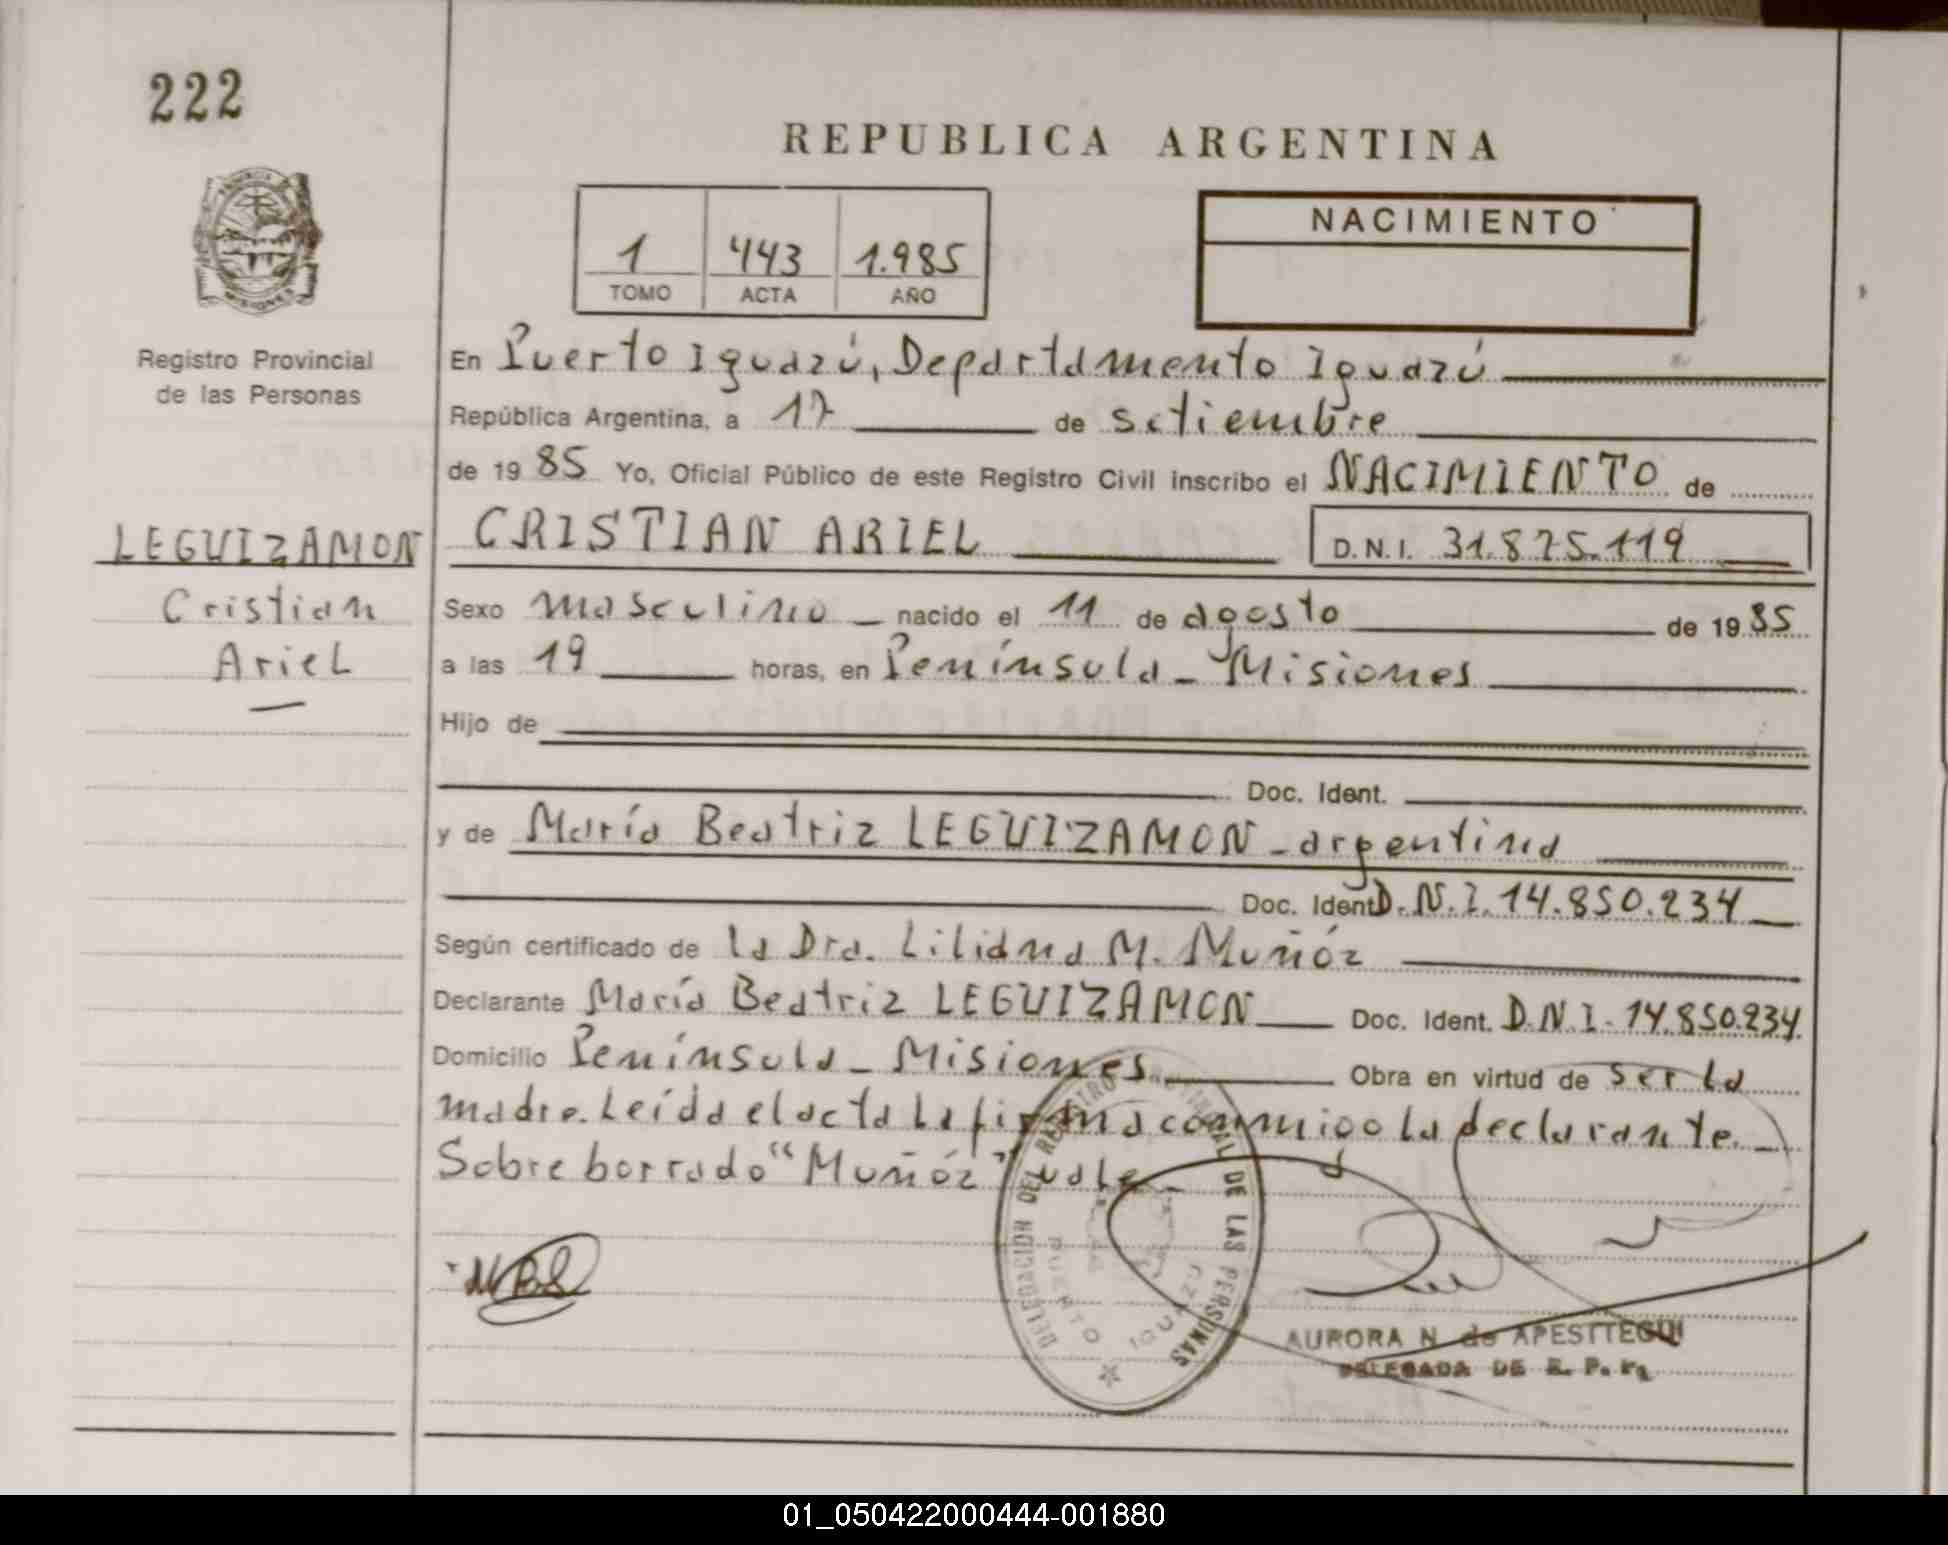 222
REPUBLICA ARGENTINA
NACIMIENTO
1 443 1.985
TOMO ACTA AÑO
Registro Provincial
de las Personas
LEGUIZAMON
Cristian
Ariel
En Puerto Iguazú, Departamento Iguazú
República Argentina, a 17 de setiembre
de 19 85 Yo, Oficial Público de este Registro Civil inscribo el NACIMIENTO de
CRISTIAN ARIEL D.N.I. 31.825.119
Sexo masculino nacido el 11 de agosto de 19 85
a las 19 horas, en Península - Misiones
Hijo de
Doc. Ident.
y de María Beatriz LEGUIZAMON - argentina
Doc. Ident D.N.I. 14.850.234
Según certificado de la Dra. Liliana M. Muñóz
Declarante María Beatriz LEGUIZAMON Doc. Ident. D.N.I. 14.850.234
Domicilio Península - Misiones Obra en virtud de ser la
madre. Leída el acta la firma conmigo la declarante.
Sobre borrado "Muñóz" vale
DELEGACION DEL REGISTRO PROVINCIAL DE LAS PERSONAS
PUERTO IGUAZU
AURORA N. de APESTTEGUI
DELEGADA DE R. P. P.
01_050422000444-001880